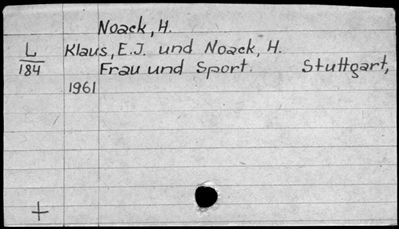 Noack, H.
L Klaus, E.J. und Noack, H.
184 Frau und Sport. Stuttgart,
1961